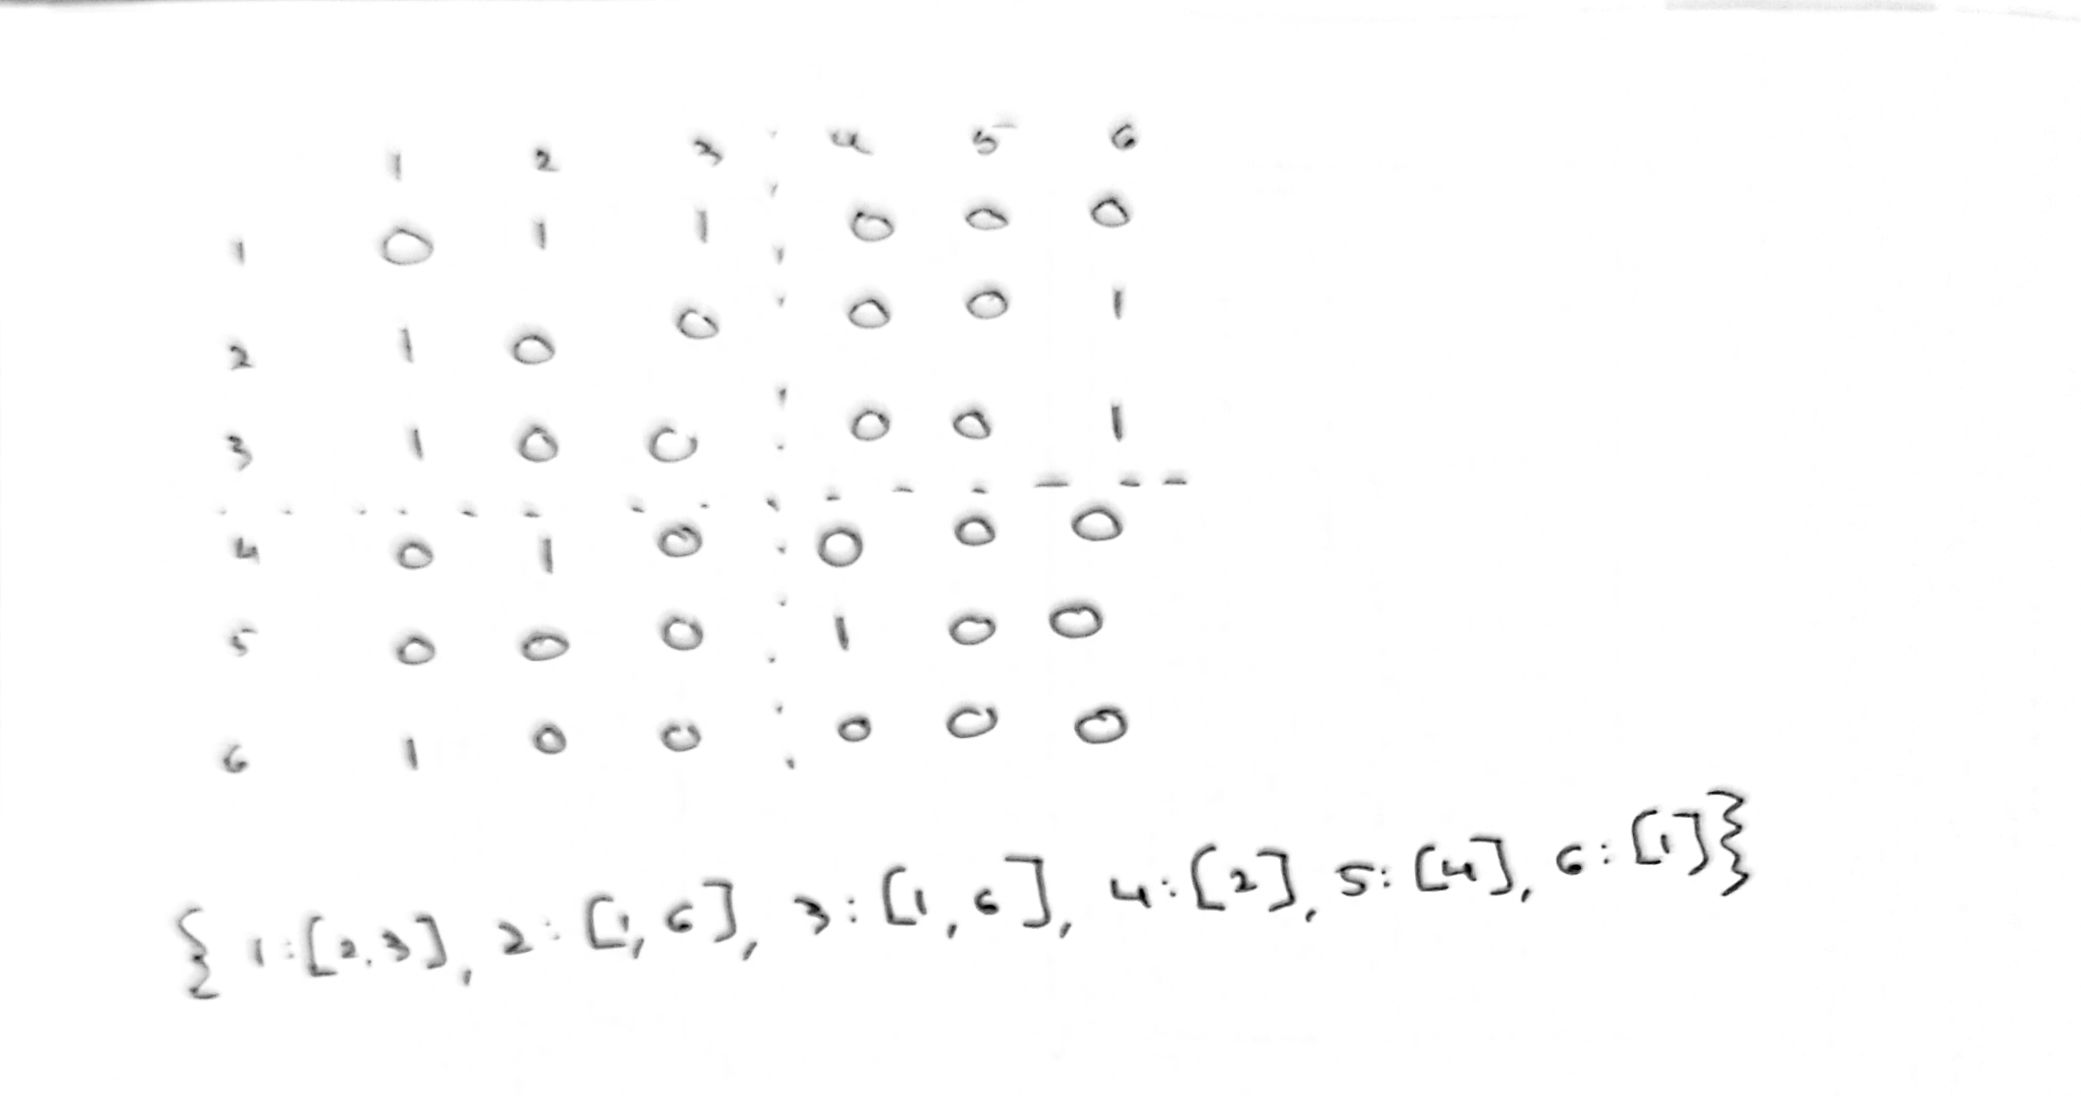 1 2 3 4 5 6
1 0 1 1 0 0 0
2 1 0 0 0 0 1
3 1 0 0 0 0 1
4 0 1 0 0 0 0
5 0 0 0 1 0 0
6 1 0 0 0 0 0
{ 1:[2,3], 2:[1,6], 3:[1,6], 4:[2], 5:[4], 6:[1]}